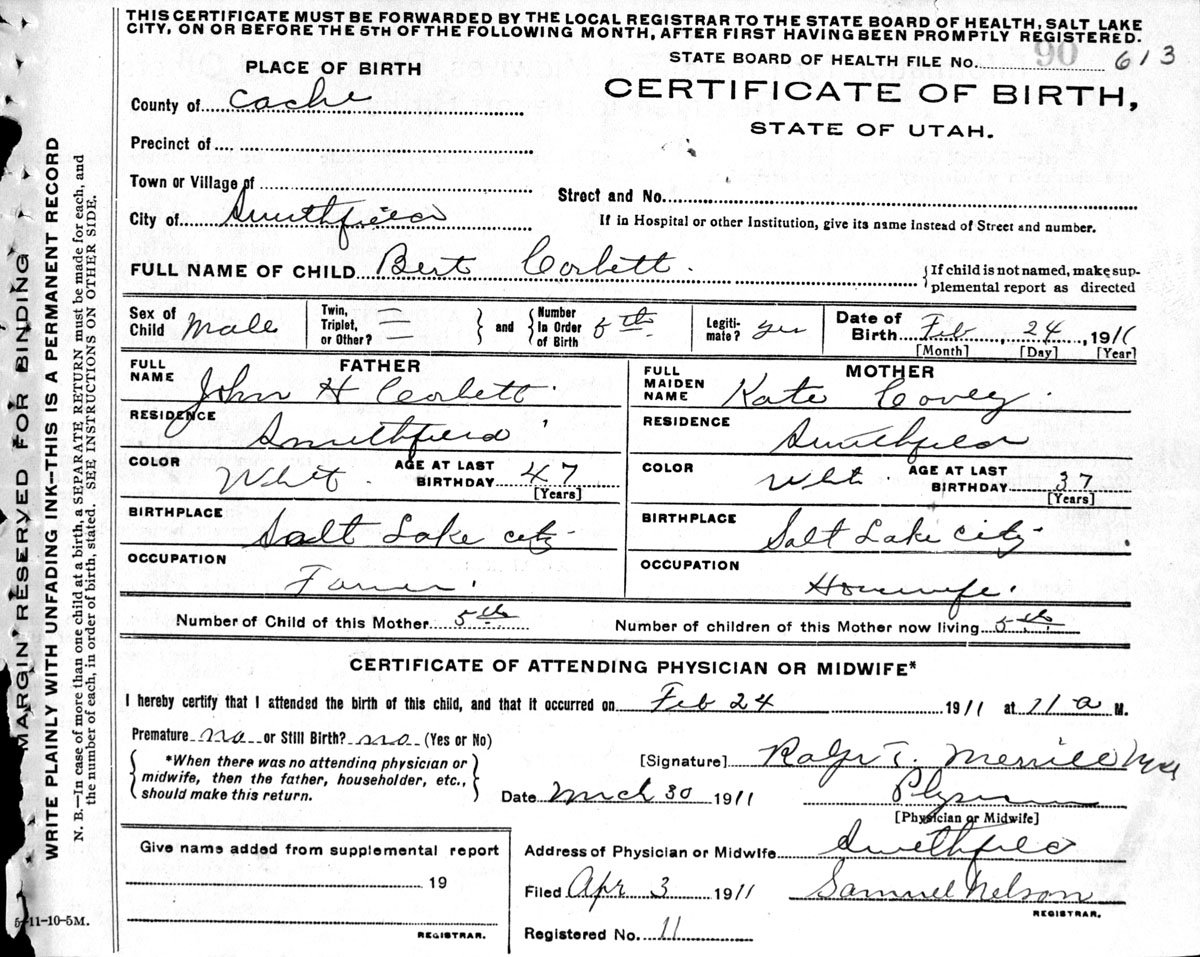 THIS CERTIFICATE MUST BE FORWARDED BY THE LOCAL REGISTRAR TO THE STATE BOARD OF HEALTH, SALT LAKE
CITY, ON OR BEFORE THE 5TH OF THE FOLLOWING MONTH, AFTER FIRST HAVING BEEN PROMPTLY REGISTERED.
STATE BOARD OF HEALTH FILE No. 90 613
PLACE OF BIRTH
CERTIFICATE OF BIRTH,
STATE OF UTAH.
County of Cache
Precinct of
Town or Village of
Street and No.
City of Smithfield
If in Hospital or other Institution, give its name instead of Street and number.
FULL NAME OF CHILD Bert Corbett.
{If child is not named, make sup-
plemental report as directed
Sex of Child Male
Twin, Triplet, or Other? =
and
Number In Order of Birth 5th
Legiti-mate? yes
Date of Birth Feb 24, 1911
[Month] [Day] [Year]
FATHER
FULL NAME John H Corbett.
RESIDENCE Smithfield
COLOR Whit.
AGE AT LAST BIRTHDAY 47
[Years]
BIRTHPLACE Salt Lake city
OCCUPATION Farmer.
MOTHER
FULL MAIDEN NAME Kate Covey.
RESIDENCE Smithfield
COLOR Wht.
AGE AT LAST BIRTHDAY 37
[Years]
BIRTHPLACE Salt Lake City
OCCUPATION Housewife.
Number of Child of this Mother 5th
Number of children of this Mother now living 5th
CERTIFICATE OF ATTENDING PHYSICIAN OR MIDWIFE*
I hereby certify that I attended the birth of this child, and that it occurred on Feb 24 1911 at 11 a M.
Premature no or Still Birth? no (Yes or No)
*When there was no attending physician or
midwife, then the father, householder, etc.,
should make this return.
[Signature] T. Merrill
Date Mch 30 1911
[Physician or Midwife]
Give name added from supplemental report
19
REGISTRAR.
Address of Physician or Midwife Smithfield
Filed Apr 3 1911 Samuel Nelson
REGISTRAR.
Registered No. 11
5-11-10-5M.
MARGIN RESERVED FOR BINDING
WRITE PLAINLY WITH UNFADING INK—THIS IS A PERMANENT RECORD
N. B.—In case of more than one child at a birth, a SEPARATE RETURN must be made for each, and
the number of each, in order of birth, stated. SEE INSTRUCTIONS ON OTHER SIDE.